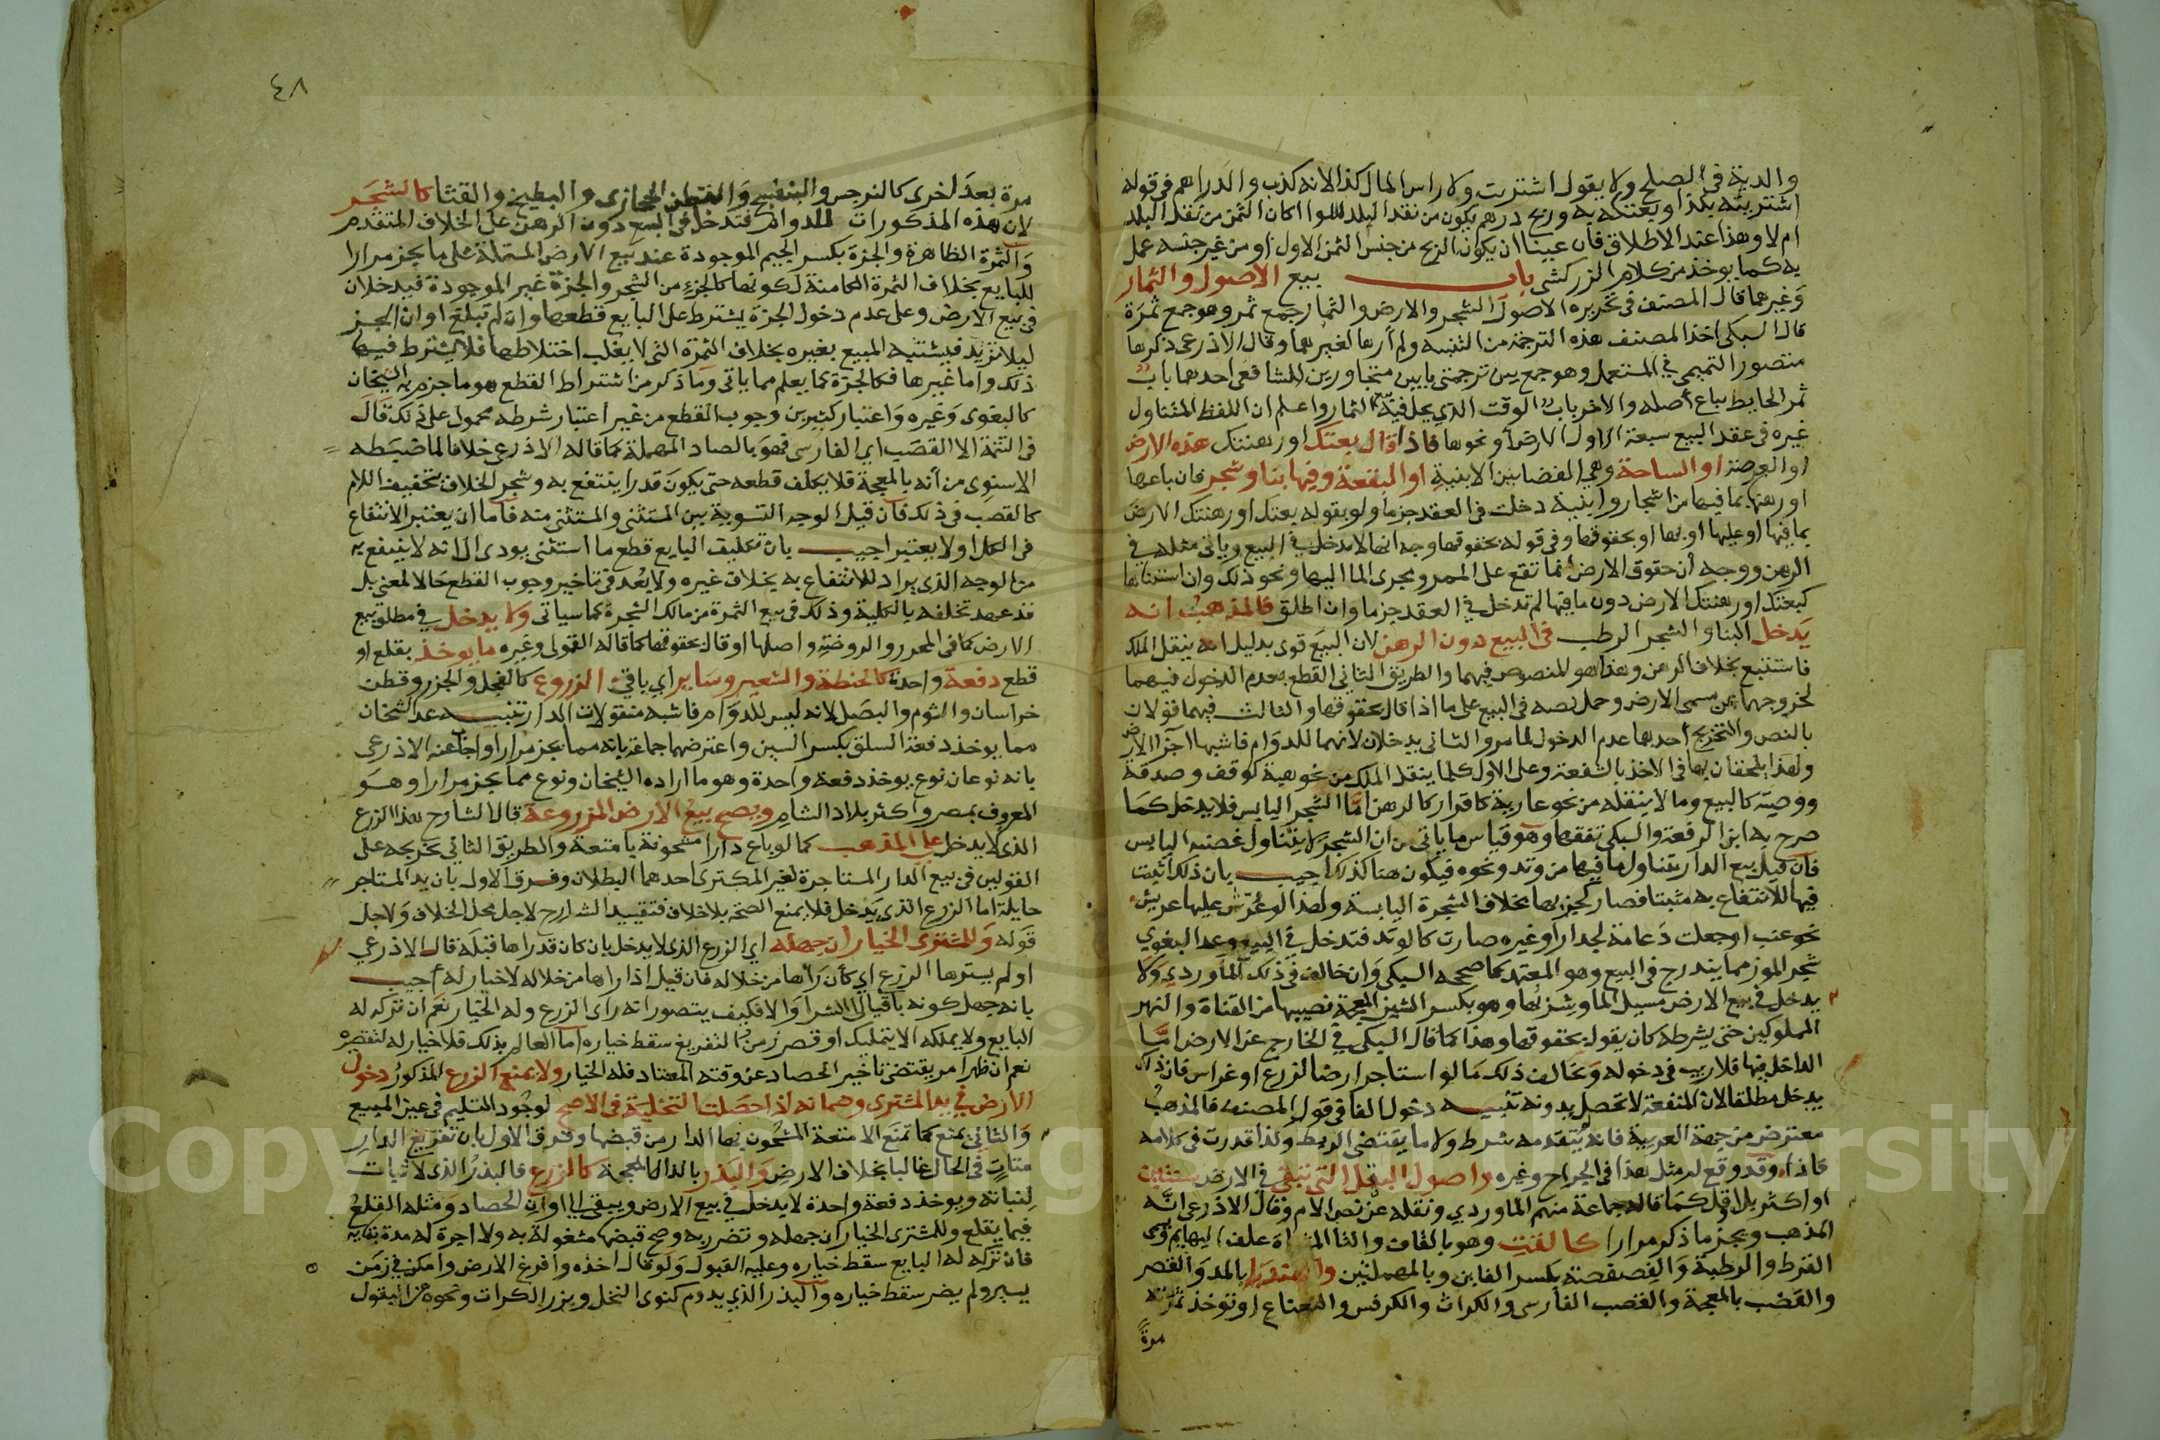 والدية في الصلح ولا يقول اشتريت ولا راس المال كذا لانه كذب والدراهم في قوله
اشتريته بكذا وبعتكه به وربح درهم يكون من نقد البلد سواء اكان الثمن من نقد البلد
ام لا وهذا عند الاطلاق فان عينا ان يكون الربح من جنس الثمن الاول او من غير جنسه عمل
به كما يوخذ من كلام الزركشي باب بيع الاصول والثمار
وغيرهما قال المصنف في تحريره الاصول الشجر والارض والثمار جمع ثمر وهو جمع ثمرة
قال السبكي اخذ المصنف هذه الترجمة من التنبيه ولم أرها لغيرهما وقال الاذرعي ذكرها
منصور التميمي في المستعمل وهو جمع بين ترجمتي بابين متجاورين للشافعي احدهما باب
ثمر الحايط يباع أصله والاخر باب الوقت الذي يحل فيه الثمار واعلم ان اللفظ المتناول
غيره في عقد البيع سبعة الاول الارض أو نحوها فاذا قال بعتك او رهنتك هذه الارض
او العرصة او الساحة وهي الفضا بين الابنية او البقعة وفيها بنا وشجر فان باعها
او رهنها بما فيها من اشجار وابنية دخلت في العقد جزما ولو بقوله بعتك او رهنتك الارض
بما فيها او عليها او بها او بحقوقها وفي قوله بحقوقها وجه انها لا تدخل في البيع وياتي مثله في
الرهن ووجه أن حقوق الارض انما تقع على الممر ومجرى الما اليها ونحو ذلك وان استثناها
كبعتك او رهنتك الارض دون ما فيها لم تدخل في العقد جزما وان اطلق فالمذهب انه
يدخل البنا والشجر الرطب في البيع دون الرهن لان البيع قوي بدليل انه ينقل الملك
فاستتبع بخلاف الرهن وهذا هو المنصوص فيهما والطريق الثاني القطع بعدم الدخول فيهما
لخروجهما عن مسمى الارض وحمل نصه في البيع على ما اذا قال بحقوقها والثالث فيهما قولان
بالنص والتخريج أحدهما عدم الدخول لما مر والثاني يدخلان لانهما للدوام فاشبها اجزا الارض
ولهذا يلحقان بها في الاخذ بالشفعة وعلى الاول كلما ينقل الملك من نحو هبة كوقف وصدقة
ووصية كالبيع وما لا ينقله من نحو عارية كاقرار كالرهن امّا الشجر اليابس فلا يدخل كما
صرح به ابن الرفعة والسبكي تفقها وهو قياس ما ياتي من ان الشجر لا يتناول غصنه اليابس
فان قيل بيع الدار يتناول ما فيها من وتد ونحوه فيكون هنا كذلك اجيب بان ذلك اثبت
فيها للانتفاع به مثبتا فصار كجزيها بخلاف الشجرة اليابسة ولهذا لو عُرّش عليها عريش
نحو عنب او جعلت دعامة لجدار او غيره صارت كالوتد فتدخل في البيع وعد البغوي
شجر الموز مما يندرج في البيع وهو المعتمد كما صححه السبكي وان خالف في ذلك الماوردي ولا
يدخل في بيع الارض مسيل الما وشربها وهو بكسر الشين المعجمة نصيبها من القناة والنهر
المملوكين حتى يشرطه كان يقول بحقوقها وهذا كما قال السبكي في الخارج عن الارض امّا
الداخل فيها فلا ريب في دخوله ويخالف ذلك ما لو استاجر ارضا لزرع او غراس فان ذلك
يدخل مطلقا لان المنفعة لا تحصل بدونه تنبيه دخول الفا في قول المصنف فالمذهب
معترض من جهة العربية فانه لم يتقدمه شرط ولا ما يقتضي الربط ولذا قدرت في كلامه
فاذا وقد وقع له مثل هذا في الجراح وغيره واصول البقل التي تبقى في الارض سنتين
او اكثر بل او اقل كما قاله جماعة منهم الماوردي ونقله عن نص الام وقال الاذرعي انّه
المذهب ويجز ما ذكر مرارا كالقت وهو بالقاف والتا المثناة علف البهايم وتسمى
القرط والرطبة والفصفصة بكسر الفاين وبالمهملتين والهندبا بالمد والقصر
والقضب بالمعجمة والقصب الفارسي والكراث والكرفس والنعناع او توخذ ثمرته
مرة
٤٨
مرة بعد اخرى كالنرجس والبنفسج والقطن الحجازي والبطيخ والقثا كالشجر
لان هذه المذكورات للدوام فتدخل في البيع دون الرهن على الخلاف المتقدم
والثمرة الظاهرة والجزة بكسر الجيم الموجودة عند بيع الارض المشتملة على ما يجز مرارا
للبايع بخلاف الثمرة الكامنة لكونها كالجزء من الشجر والجزة غير الموجودة فيدخلان
في بيع الارض وعلى عدم دخول الجزة يشترط على البايع قطعها وان لم تبلغ اوان الجز
ليلا تزيد فيشتبه المبيع بغيره بخلاف الثمرة التي لا يغلب اختلاطها فلا يشترط فيها
ذلك واما غيرها فكالجزة كما يعلم مما ياتي وما ذكر من اشتراط القطع هو ما جزم به الشيخان
كالبغوي وغيره واعتبار كثيرين وجوب القطع من غير اعتبار شرطه محمول على ذلك قال
في التتمة الا القصب اي الفارسي فهو بالصاد المهملة كما قاله الاذرعي خلافا لما ضبطه
الاسنوي من أنه بالمعجمة فلا يكلف قطعه حتى يكون قدرا ينتفع به وشجر الخلاف بتخفيف اللام
كالقصب في ذلك فان قيل الوجه التسوية بين المستثنى والمستثنى منه فاما أن يعتبر الانتفاع
في الكل او لا يعتبر اجيب بان تكليف البايع قطع ما استثنى يودي الى انه لا ينتفع به
من الوجه الذي يراد للانتفاع به بخلاف غيره ولا بُعد في تاخير وجوب القطع حالا لمعنى بل
قد عهد تخلفه بالكلية وذلك في بيع الثمرة من مالك الشجرة كما سياتي ولا يدخل في مطلق بيع
الارض كما في المحرر والروضة واصلها او قال بحقوقها كما قاله القمولي وغيره ما يوخذ بقلع او
قطع دفعة واحدة كالحنطة والشعير وساير أي باقي الزروع كالفجل والجزر وقطن
خراسان والثوم والبصل لانه ليس للدوام فاشبه منقولات الدار تنبيه عد الشيخان
مما يوخذ دفعة السلق بكسر السين واعترضهما جماعة بانه مما يجز مرارا واجاب عنه الاذرعي
بانه نوعان نوع يوخذ دفعة واحدة وهو ما اراده الشيخان ونوع مما يجز مرارا وهو
المعروف بمصر واكثر بلاد الشام ويصح بيع الارض المزروعة قال الشارح هذا الزرع
الذي لا يدخل على المذهب كما لو باع دارا مشحونة بامتعة والطريق الثاني تخريجه على
القولين في بيع الدار المستاجرة لغير المكتري احدهما البطلان وفرق الاول بان يد المستاجر
حايلة اما الزرع الذي يدخل فلا يمنع الصحة بلا خلاف فتقييد الشارح لاجل محل الخلاف ولاجل
قوله وللمشتري الخيار ان جهله أي الزرع الذي لا يدخل بان كان قدراها قبله قال الاذرعي
او لم يسترها الزرع اي كأن راها من خلاله فان قيل اذا راها من خلاله لا خيار له أجيب
بانه جهل كونه باقيا الى الشرا والا فكيف يتصور انه راى الزرع وله الخيار نعم ان تركه له
البايع ولا يملكه الا بتمليك او قصر زمن التفريغ سقط خياره اما العالم بذلك فلا خيار له لتقصيره
نعم ان ظهر امر يقتضي تاخير الحصاد عن وقته المعتاد فله الخيار ولا يمنع الزرع المذكور دخول
الارض في يد المشتري وضمانه اذا حصلت التخلية في الاصح لوجود التسليم في عين المبيع
والثاني يمنع كما تمنع الامتعة المشحون بها الدار من قبضها وفرق الاول بان تفريغ الدار
متات في الحال غالبا بخلاف الارض والبذر بالذال المعجمة كالزرع فالبذر الذي لا ثبات
لنباته ويوخذ دفعة واحدة لا يدخل في بيع الارض ويبقى الى اوان الحصاد ومثله القلع
فيما يقلع وللمشتري الخيار ان جهله وتضرر به وصح قبضها مشغولة به ولا اجرة له مدة بقايه
فان تركه له البايع سقط خياره وعليه القبول ولو قال اخذه وافرغ الارض وامكن في زمن
يسير ولم يضر سقط خياره والبذر الذي يدوم كنوى النخل وبزر الكراث ونحوه من البقول